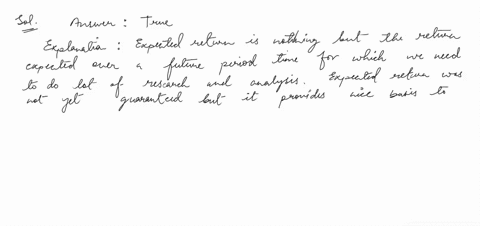 Sol. Answer : True
Explanatio : Expected return is nothing but the return
expected over a future period time for which we need
to do lot of research and analysis. Expected return was
not yet guaranteed but it provides nice basis to